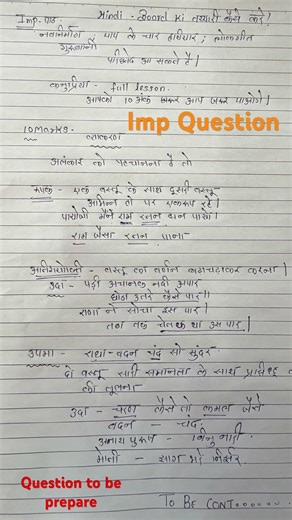 Hindi - Board ki तय्यारी कैसे करे!
Imp. पाठ
नवनिर्माण पाप के चार हथियार, लोकगीत
गुरुबानी
परिच्छेद आ सकते है।
कनुप्रिया - full lesson.
आपको 10 अंक जरूर आप जरूर पाओगे।
Imp Question
10 Marks.
व्याकरण
अलंकार को पहचानना है तो
रूपक - एक वस्तू के साथ दूसरी वस्तू
अभिन्न हो पर एकरूप रहे।
पायोजी मैने राम रतन धन पायो।
राम जैसा रतन पाना
अतिशयोक्ती - वस्तू का वर्णन बढाचढाकर करना।
उदा - पड़ी अचानक नदी अपार
घोडा उतरे कैसे पार॥
राणा ने सोचा इस पार।
तब तक चेतक था उस पार।
उपमा - राधा-वदन चंद सो सुंदर
दो वस्तू समानता के साथ
की तूलना
उदा - चरण कैसे तो कमल जैसे
वदन - चंद
मोती - सागर
Question to be
prepare
TO BE CONT......